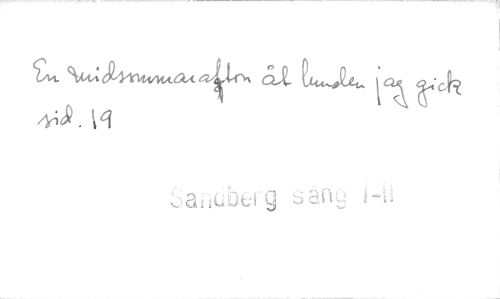 En midsommarafton åt lunden jag gick
sid. 19
Sandberg sång I-II